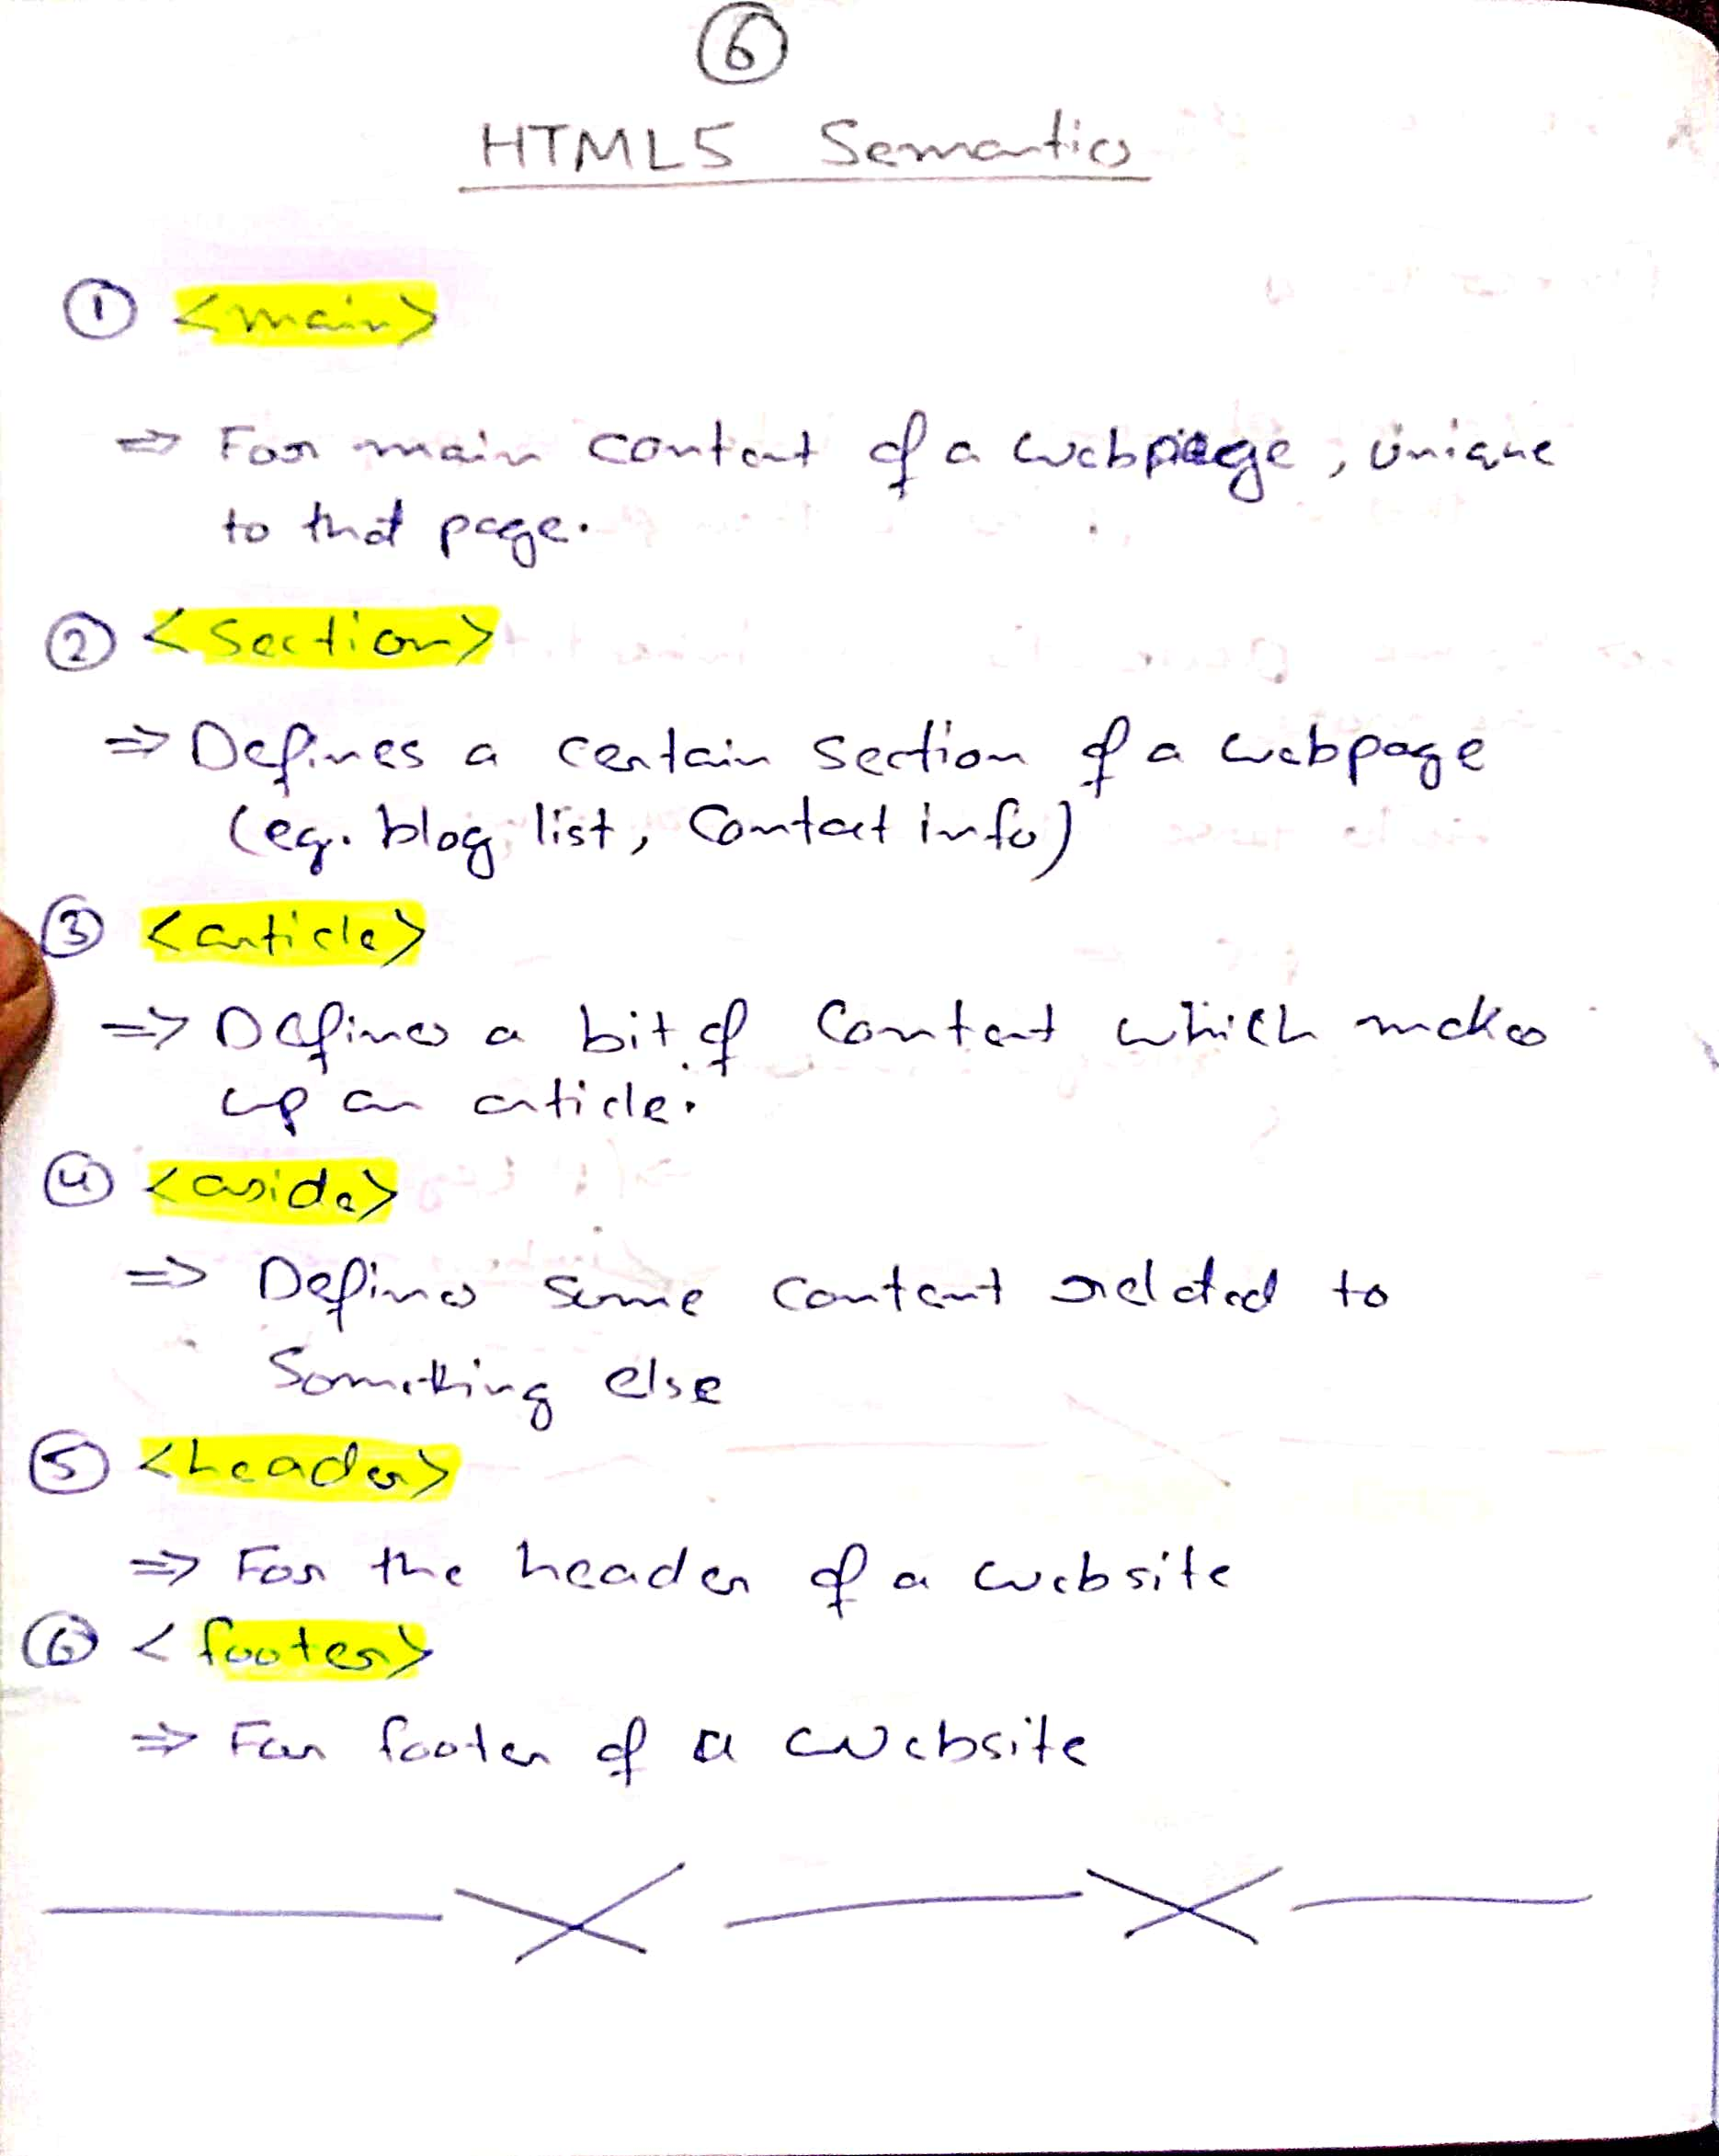 6
HTML5 Semantics
1 <main>
=> For main content of a webpage, unique
to that page.
2 <section>
=> Defines a certain section of a webpage
(eg. blog list, Contact info)
3 <article>
=> Defines a bit of Content which makes
up an article.
4 <aside>
=> Defines some content related to
Something else
5 <header>
=> For the header of a website
6 <footer>
=> For footer of a website